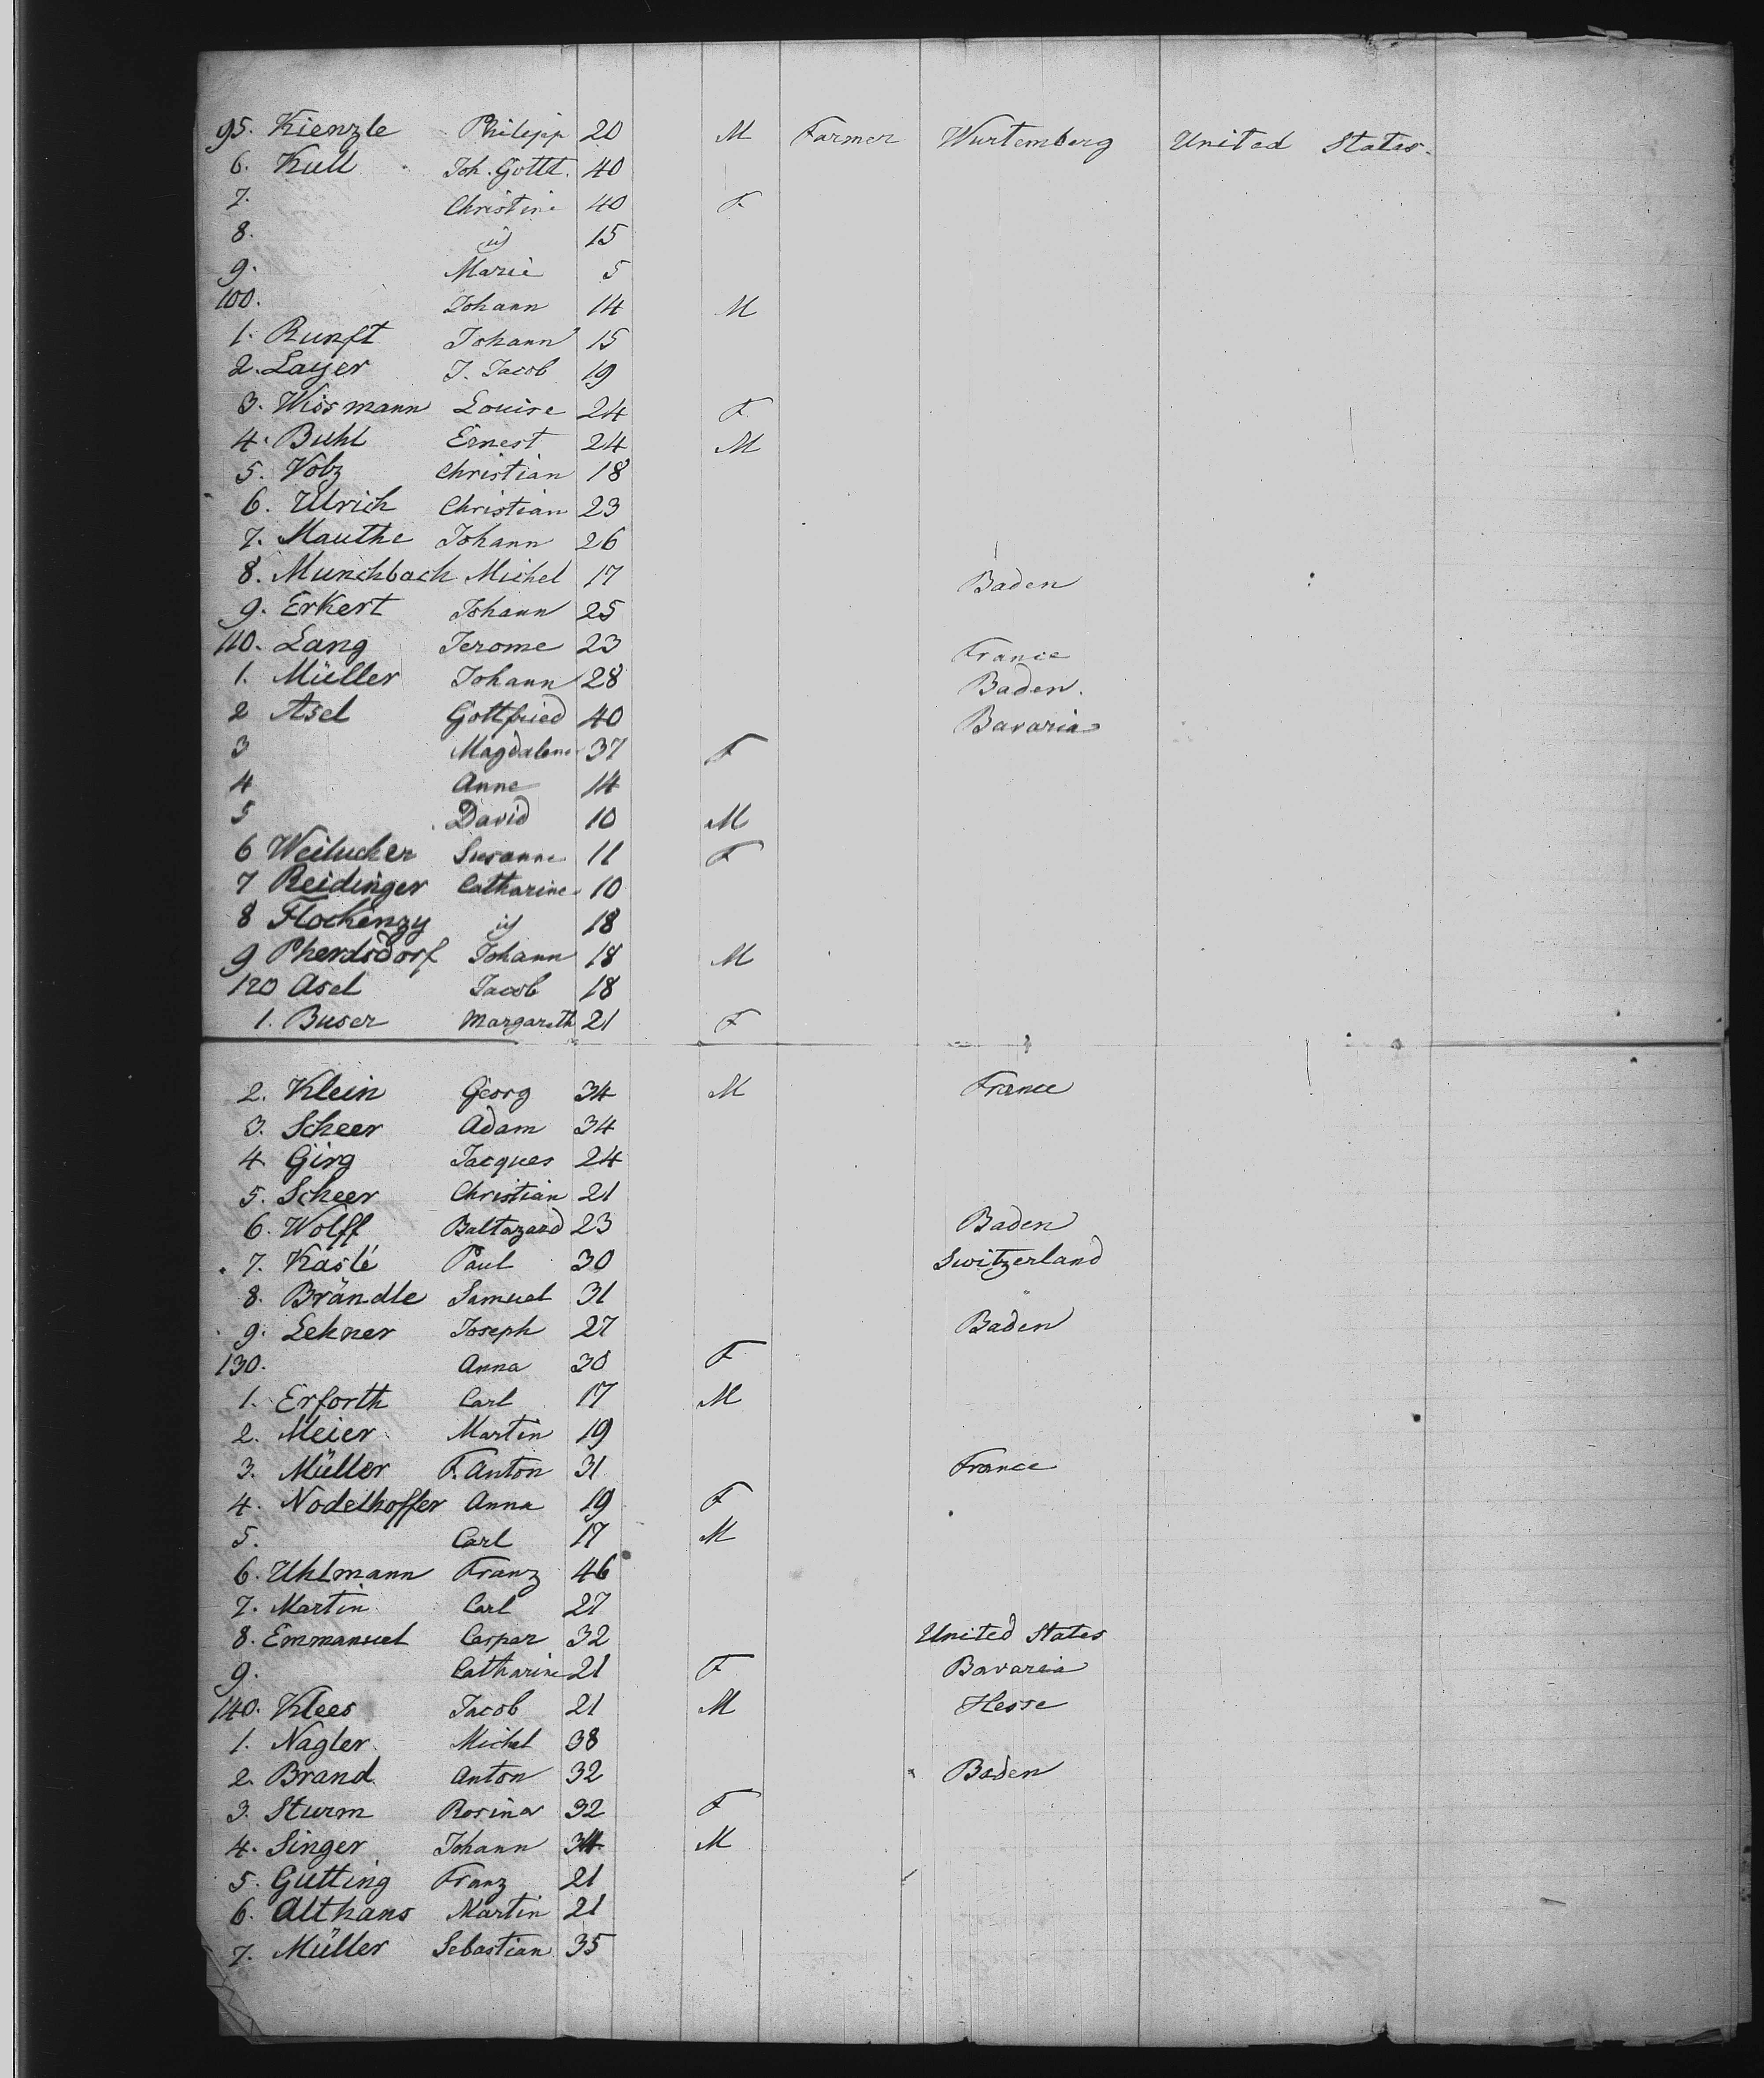 95. Kienzle Philipp 20 M Farmer Wurtemberg United States.
6. Kull Joh. Gottl. 40
7. Christine 40 F
8. id 15
9. Marie 5
100. Johann 14 M
1. Runft Johann 15
2. Layer J. Jacob 19
3. Wissmann Louise 24 F
4. Buhl Ernest 24 M
5. Volz Christian 18
6. Ulrich Christian 23
7. Mauthe Johann 26
8. Munchbach Michel 17 Baden
9. Erkert Johann 25
110. Lang Jerome 23 France
1. Müller Johann 28 Baden.
2 Asel Gottfried 40 Bavaria
3 Magdalena 37 F
4 Anne 14
5 David 10 M
6 Weilucher Susanne 11 F
7 Reidinger Catharine 10
8 Flockenzy id 18
9 Pherdsdorf Johann 18 M
120 Asel Jacob 18
1. Buser Margareth 21 F
2. Klein Georg 34 M France
3. Scheer Adam 34
4. Girg Jacques 24
5. Scheer Christian 21
6. Wolff Baltazard 23 Baden
7. Kaslé Paul 30 Switzerland
8. Brändle Samuel 31 "
9. Lehner Joseph 27 Baden
130. Anna 30 F
1. Erforth Carl 17 M
2. Meier Martin 19
3. Müller F. Anton 31 France
4. Nodelhoffer Anna 19 F
5. Carl 17 M
6. Uhlmann Franz 46
7. Martin Carl 27
8. Emmanuel Caspar 32 United States
9. Catharine 21 F Bavaria
140. Klees Jacob 21 M Hesse
1. Nagler Michel 38
2. Brand Anton 32 Baden
3. Sturm Rosina 32 F
4. Singer Johann 34 M
5. Gutting Franz 21
6. Althans Martin 21
7. Müller Sebastian 35